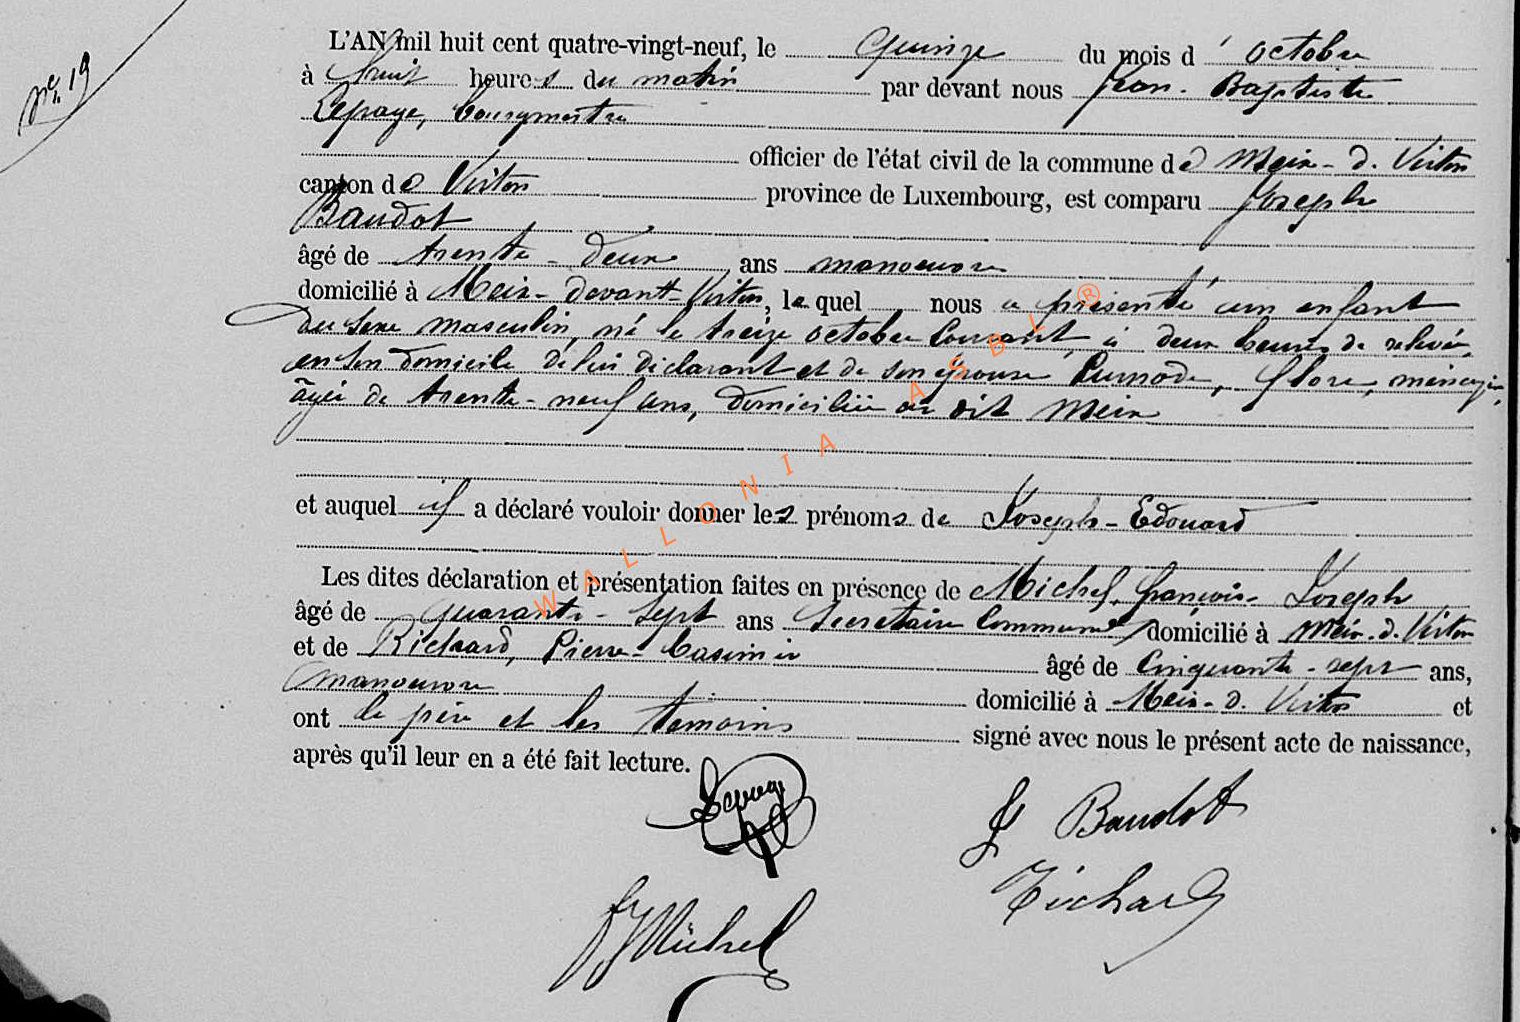 N° 19
L'AN mil huit cent quatre-vingt-neuf, le quinze du mois d' octobre
à huit heures du matin par devant nous Jean-Baptiste
Lepage, bourgmestre
officier de l'état civil de la commune de Meix-d.-Virton
canton de Virton province de Luxembourg, est comparu Joseph
Baudot
âgé de trente-deux ans manoeuvre
domicilié à Meix-devant-Virton, lequel nous a présenté un enfant
du sexe masculin, né le treize octobre courant, à deux heures de relevée,
en son domicile de lui déclarant et de son épouse Flore, ménagère,
âgée de trente-neuf ans, domiciliée au dit Meix
et auquel il a déclaré vouloir donner les prénoms de Joseph-Edouard
Les dites déclaration et présentation faites en présence de Michel, François-Joseph
âgé de quarante-sept ans secrétaire communal domicilié à Meix-d.-Virton
et de Richard, Pierre-Casimir âgé de cinquante-sept ans,
manoeuvre domicilié à Meix-d.-Virton et
ont le père et les témoins signé avec nous le présent acte de naissance,
après qu'il leur en a été fait lecture.
Lepage
J Baudot
Richard
FJ Michel
WALLONIA ASBL ®